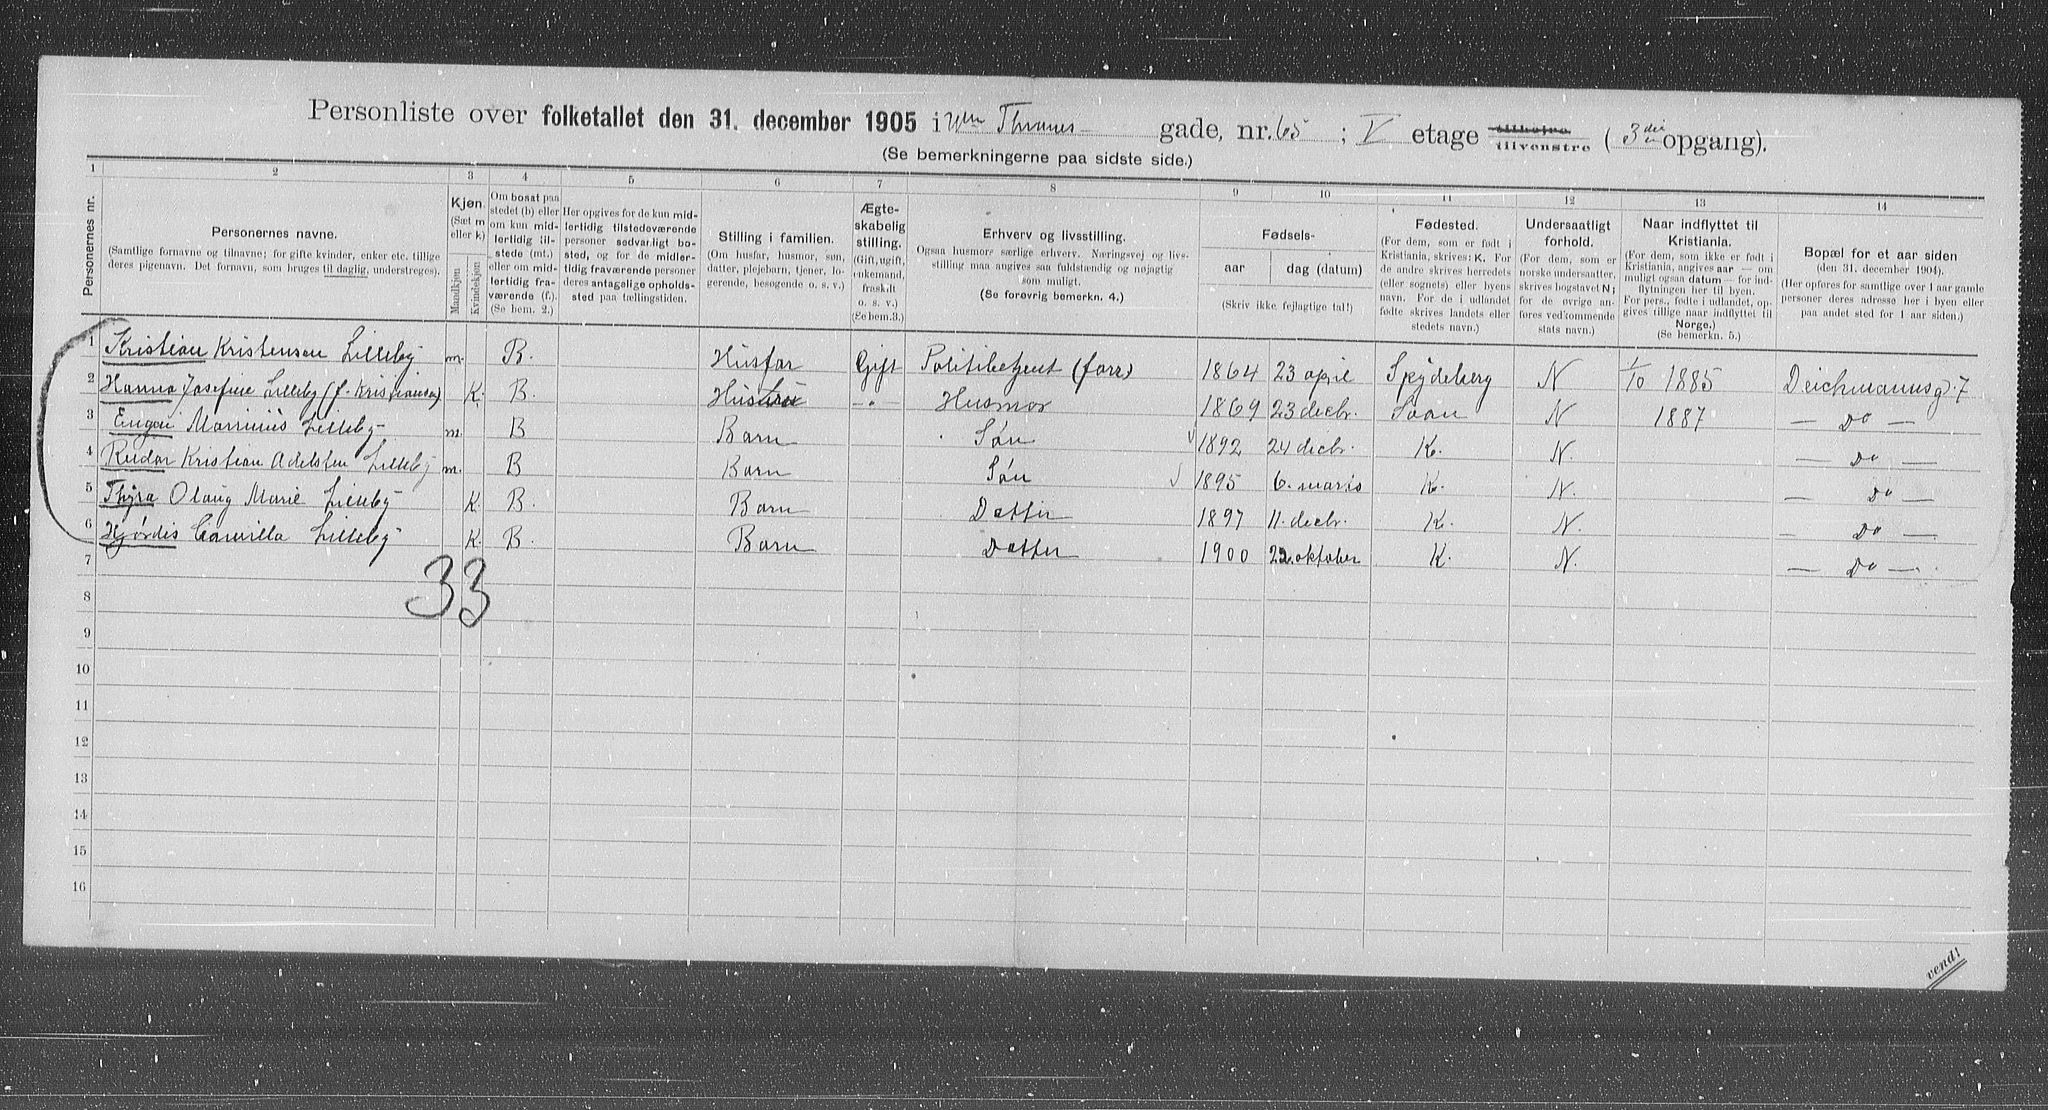 Personliste over folketallet den 31. december 1905 i Thranes gade, nr. 65 ; V etage tilhøjre tilvenstre ( 3die opgang).
(Se bemerkningerne paa sidste side.)
1 2 3 4 5 6 7 8 9 10 11 12 13 14
Personernes nr.
Personernes navne.
(Samtlige fornavne og tilnavne; for gifte kvinder, enker etc. tillige
deres pigenavn. Det fornavn, som bruges til daglig, understreges).
Kjøn.
(Sæt m
eller k)
Mandkjøn
Kvindekjøn
Om bosat paa
stedet (b) eller
om kun mid-
lertidig til-
stede (mt.)
eller om mid-
lertidig fra-
værende (f.).
(Se bem. 2.)
Her opgives for de kun mid-
lertidig tilstedeværende
personer sedvarligt bo-
sted, og for de midler-
tidig fraværende personer
deres antagelige opholds-
sted paa tællingstiden.
Stilling i familien.
(Om husfar, husmor, søn,
datter, plejebarn, tjener, lo-
gerende, besøgende o. s. v.)
Ægte-
skabelig
stilling.
(Gift, ugift,
enkemand,
fraskilt
o. s. v.)
(Se bem.3.)
Erhverv og livsstilling.
Ogsaa husmors særlige erhverv. Næringsvej og livs-
stilling maa angives saa fuldstændig og nøjagtig
som muligt.
(Se forøvrig bemerkn. 4.)
Fødsels-
aar dag (datum)
(Skriv ikke fejlagtige tal!)
Fødested.
(For dem, som er født i
Kristiania, skrives: K. For
de andre skrives herredets
(eller sognets) eller byens
navn. For de i udlandet
fødte skrives landets eller
stedets navn.)
Undersaatligt
forhold.
(For dem, som er
norske undersaatter,
skrives bogstavet N;
for de øvrige an-
føres vedkommende
stats navn.)
Naar indflyttet til
Kristiania.
(For dem, som ikke er født i
Kristiania, angives aar — om
muligt ogsaa datum — for ind-
flytningen her til byen.
For pers., fødte i udlandet, op-
gives tillige naar indflyttet til
Norge.)
(Se bemerkn. 5.)
Bopæl for et aar siden
(den 31. december 1904).
(Her opføres for samtlige over 1 aar gamle
personer deres adresse her i byen eller
paa andet sted for 1 aar siden.)
1 Kristian Kristensen Lilleby m. B. Husfar Gift Politibetjent (forr) 1864 23 april Spydeberg N 1/10 1885 Deichmannsg. 7
2 Hanna Josefine Lilleby (f. Kristiansen) K. B. Hustru —"— Husmor 1869 23 decbr. Saan N 1887 — Do —
3 Marinius Lilleby m. B Barn Søn 1892 24 decbr. K. N. — Do —
4 Reidar Kristian Adelsten Lilleby m. B Barn Søn 1895 6. marts K. N. — Do —
5 Thyra Olaug Marie Lilleby K. B. Barn Datter 1897 11. decbr. K. N. — Do —
6 Hjørdis Camilla Lilleby K. B. Barn Datter 1900 22. oktober K. N. — Do —
7
33
8
9
10
11
12
13
14
15
16
vend!